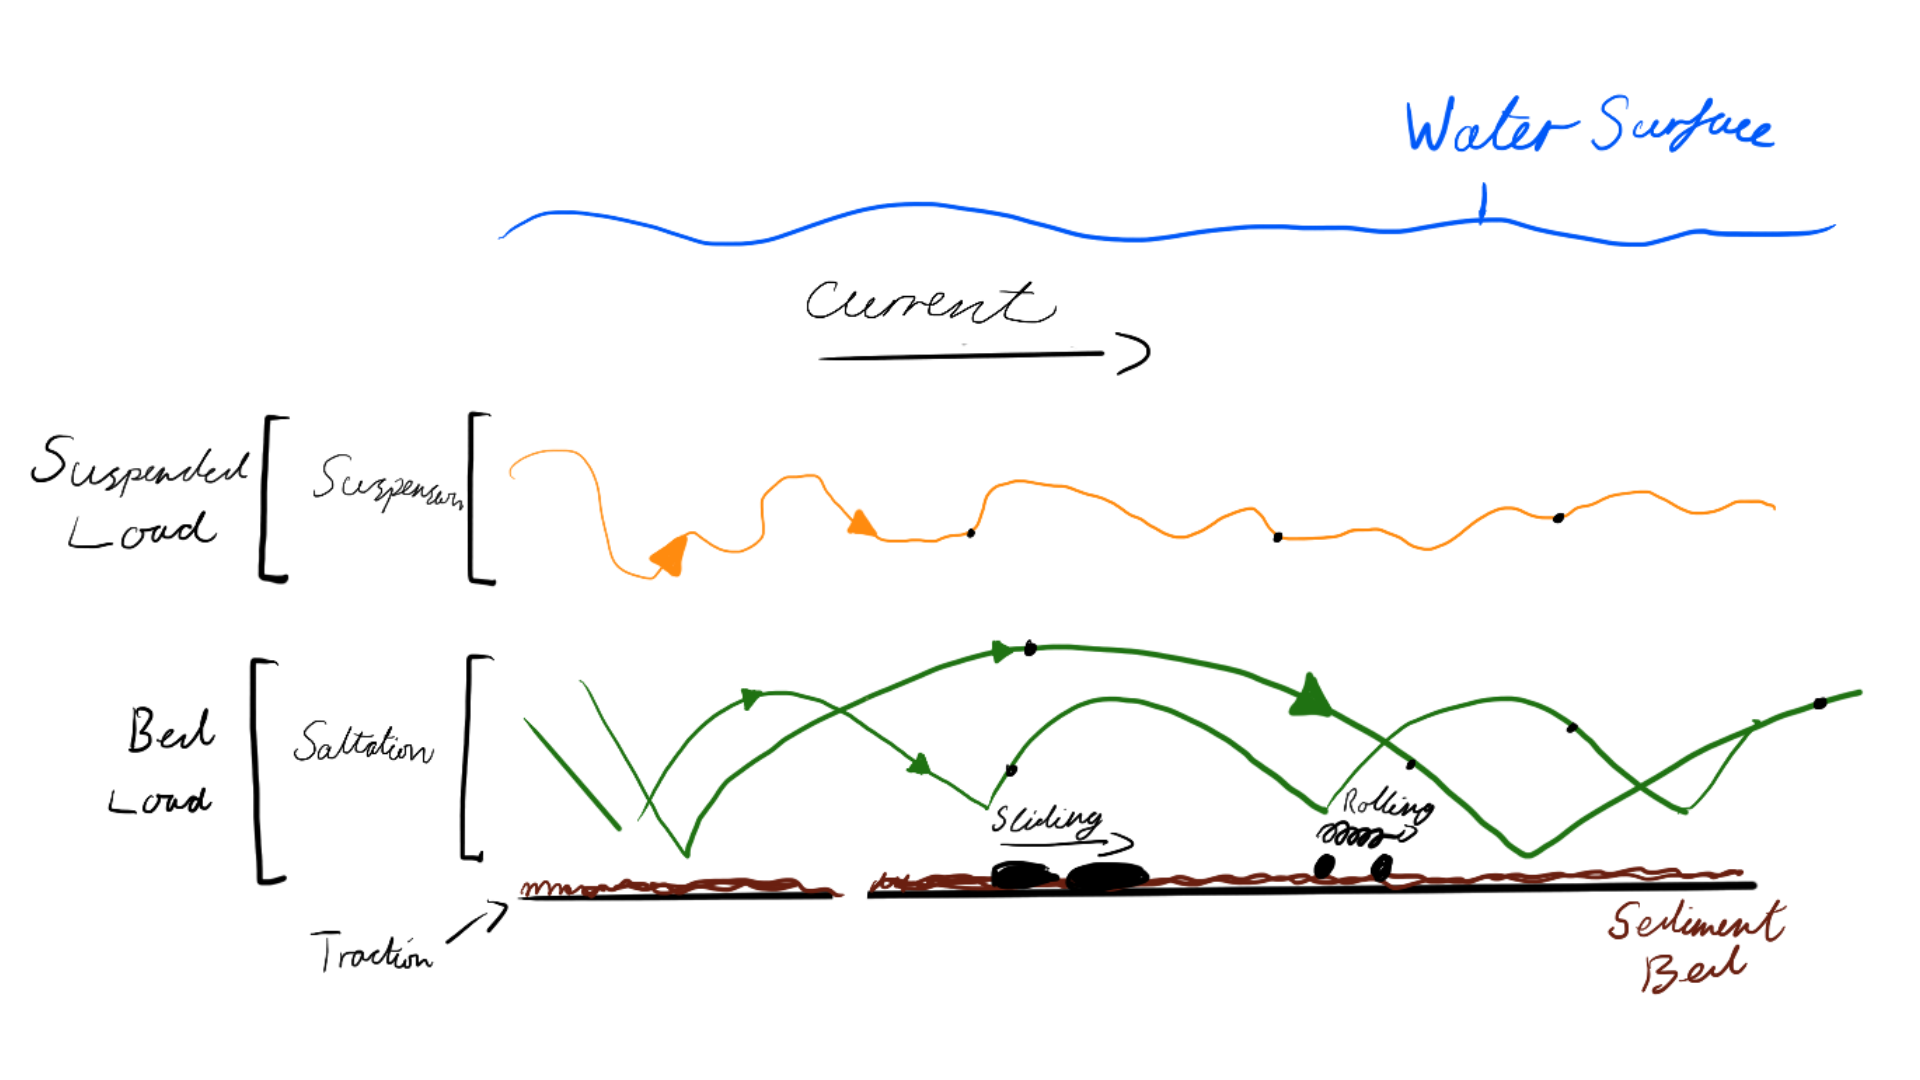 Water Surface
Current
Suspended
Load
Suspension
Bed
Load
Saltation
Sliding
Rolling
Traction
Sediment
Bed